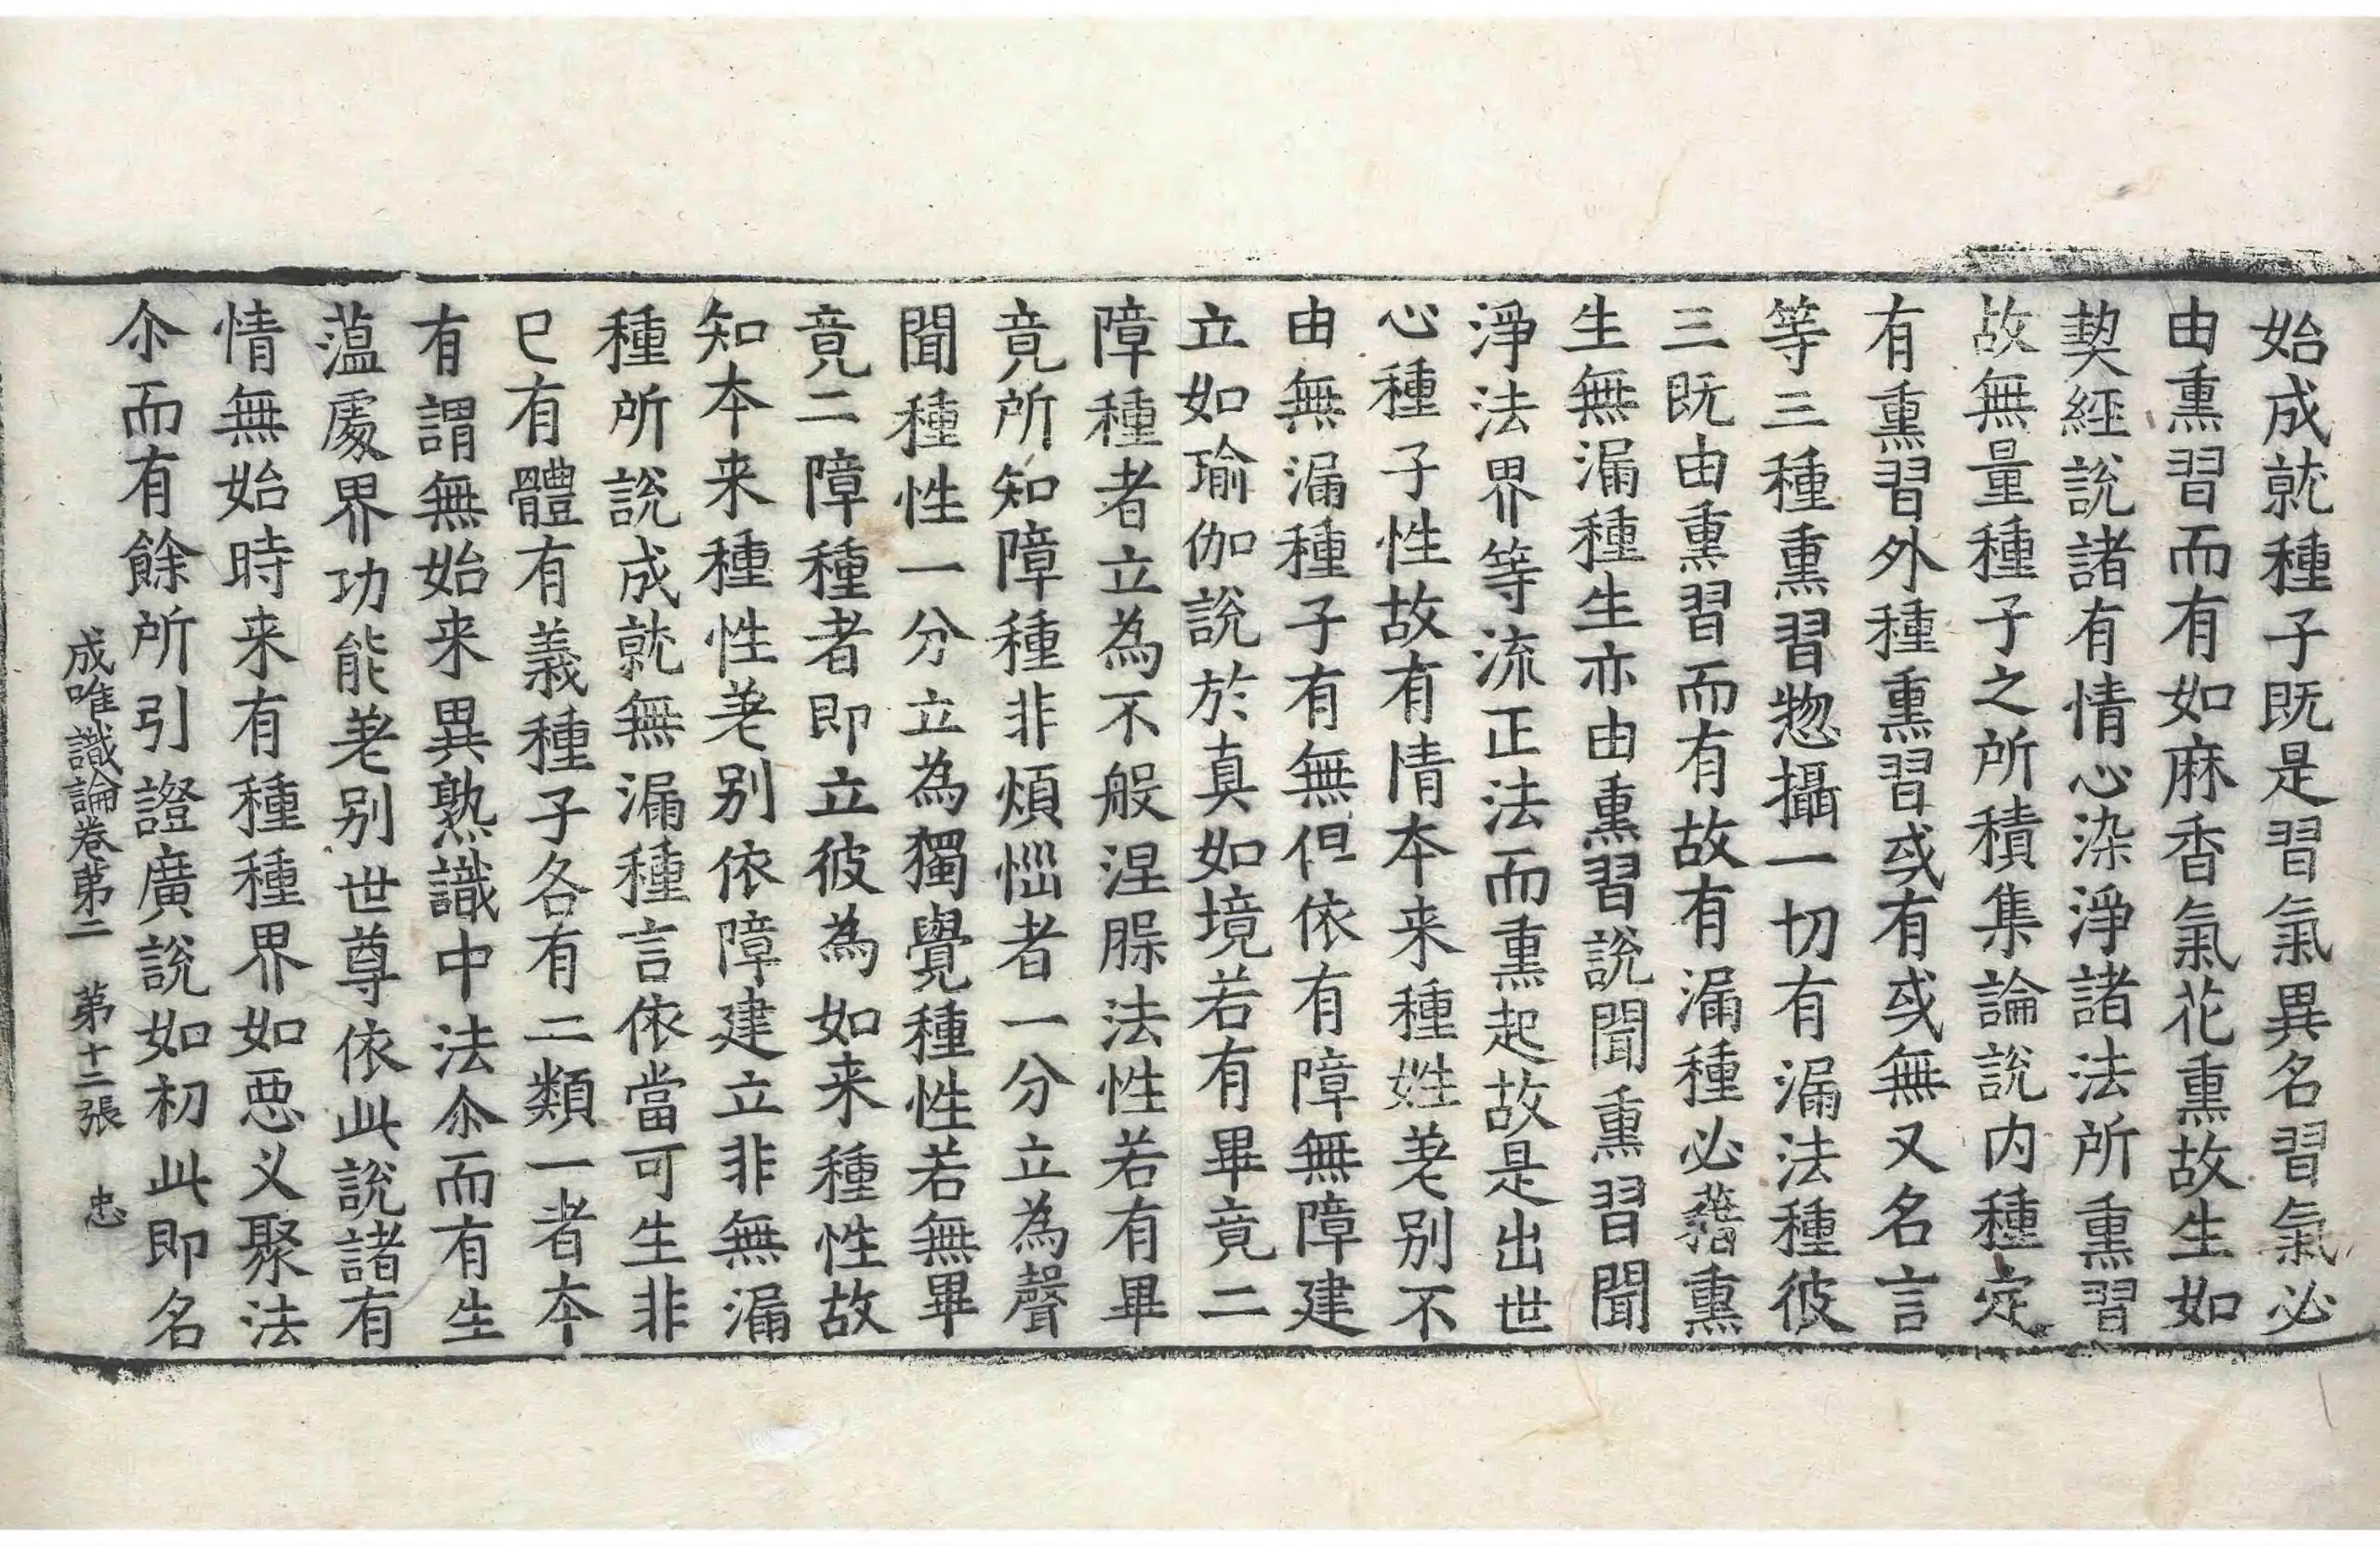 始成就種子既是習氣異名習氣必
由熏習而有如麻香氣花熏故生如
契經說諸有情心染淨諸法所熏習
故無量種子之所積集論說內種定
有熏習外種熏習或有或無又名言
等三種熏習惣攝一切有漏法種彼
三既由熏習而有故有漏種必藉熏
生無漏種生亦由熏習說聞熏習聞
淨法界等流正法而熏起故是出世
心種子性故有情本来種姓差別不
由無漏種子有無但依有障無障建
立如瑜伽說於真如境若有畢竟二
障種者立為不般涅槃法性若有畢
竟所知障種非煩惱者一分立為聲
聞種性一分立為獨覺種性若無畢
竟二障種者即立彼為如来種性故
知本来種性差別依障建立非無漏
種所說成就無漏種言依當可生非
已有體有義種子各有二類一者本
有謂無始来異熟識中法尒而有生
蕰處界功能差別世尊依此說諸有
情無始時来有種種界如惡义聚法
尒而有餘所引證廣說如初此即名
成唯識論卷第二 第十二張 忠